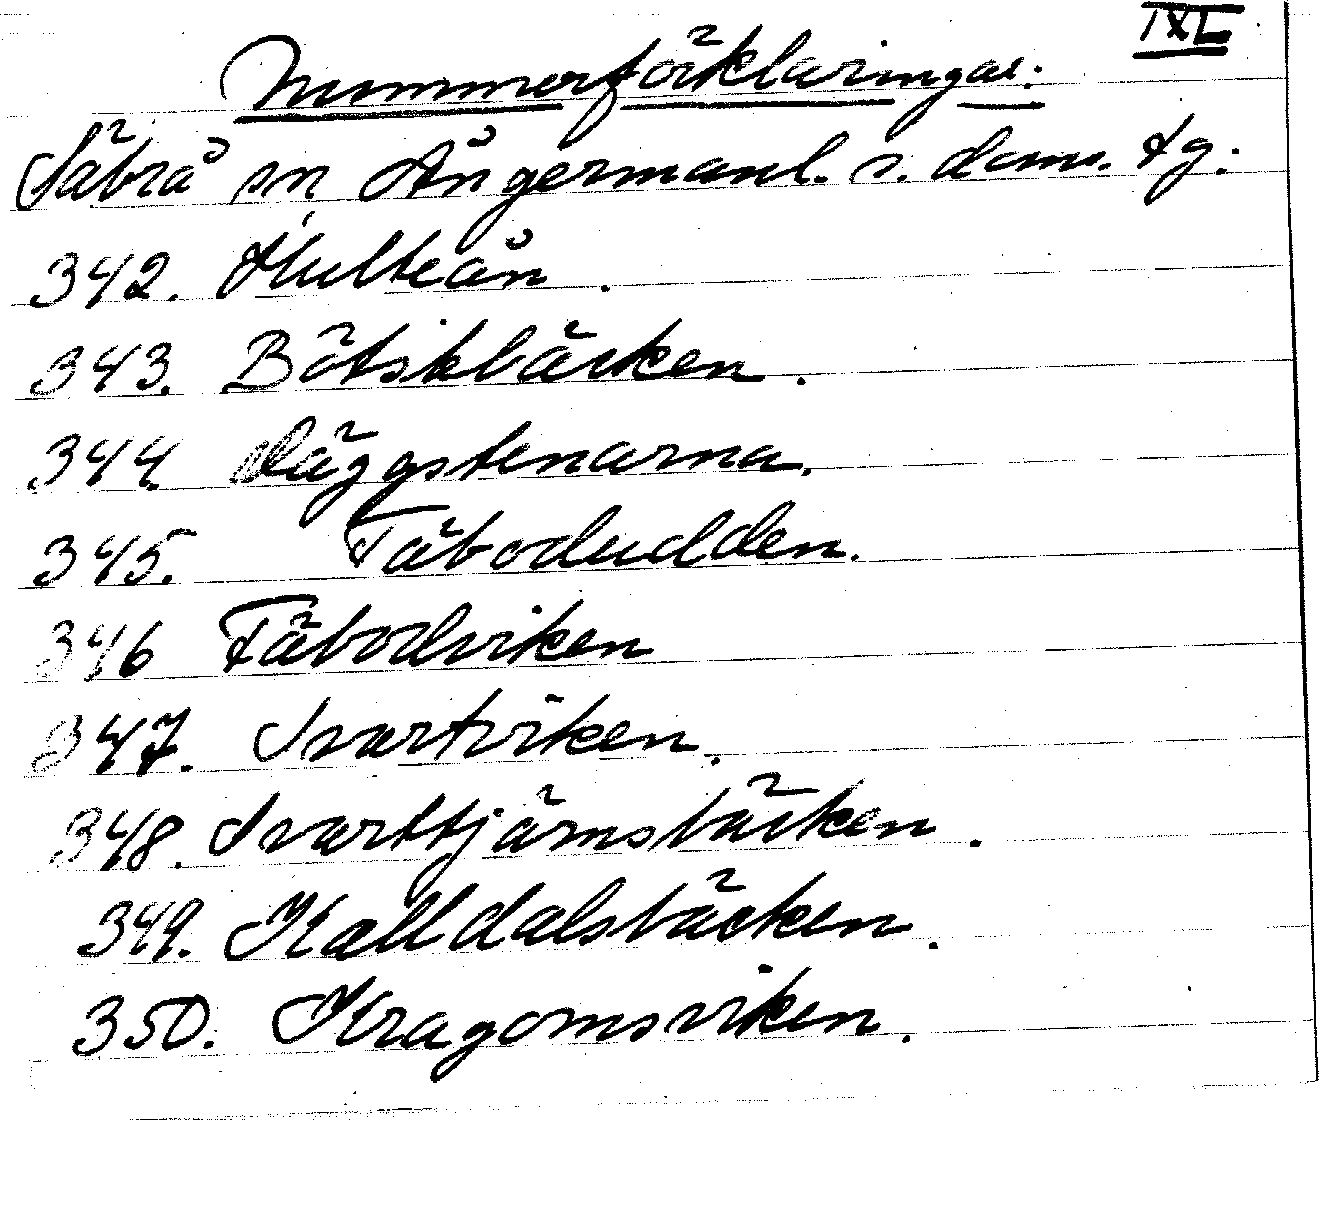 IXL
Nummerförklaringar:
Säbrå sn Ångermanl. s. doms. tg.
342. Hulteån.
343. Bötsikbäcken.
344. Läggstenarna.
345. Täbodudden.
346 Fäbodviken
347. Svartviken.
348. Svarttjärnsbäcken.
349. Kalldalsbäcken.
350. Kragomsviken.